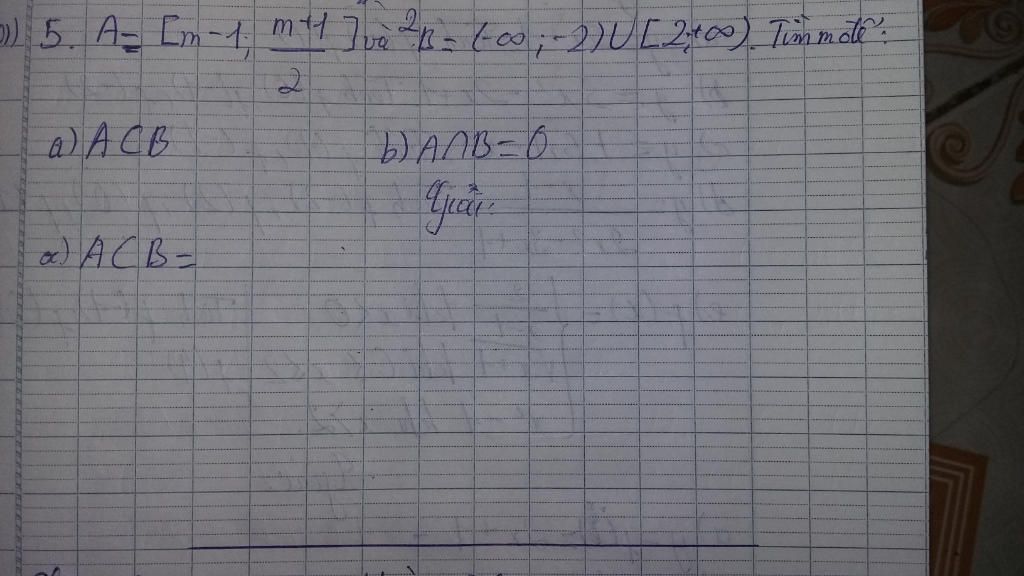 5. A = [m-1; m+1/2] và B = (-∞; -2) ∪ [2; +∞). Tìm m để:
a) A ⊂ B b) A ∩ B = ∅
Giải:
a) A ⊂ B =